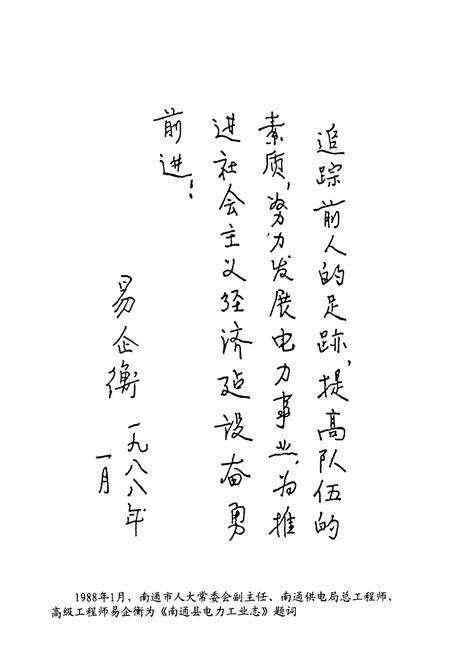 追踪前人的足跡，提高队伍的
素质，努力发展电力事业，为推
进社会主义经济建设奋勇
前进！
易企衡 一九八八年
一月
1988年1月，南通市人大常委会副主任、南通供电局总工程师、
高级工程师易企衡为《南通县电力工业志》题词